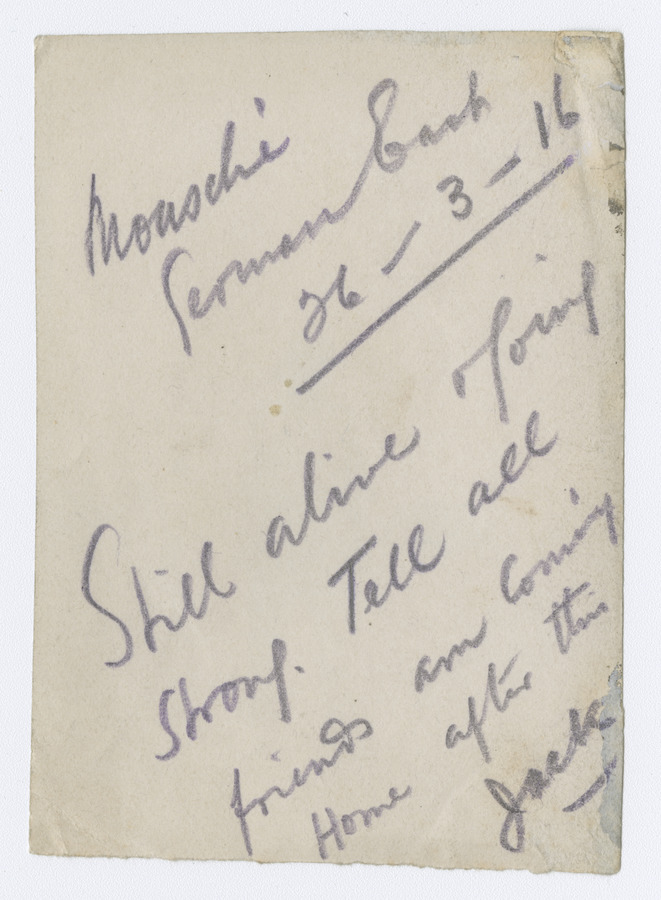 Moraschi
German East
26 - 3 - 16
Still alive & going
strong. Tell all
friends am coming
Home after this
Jack